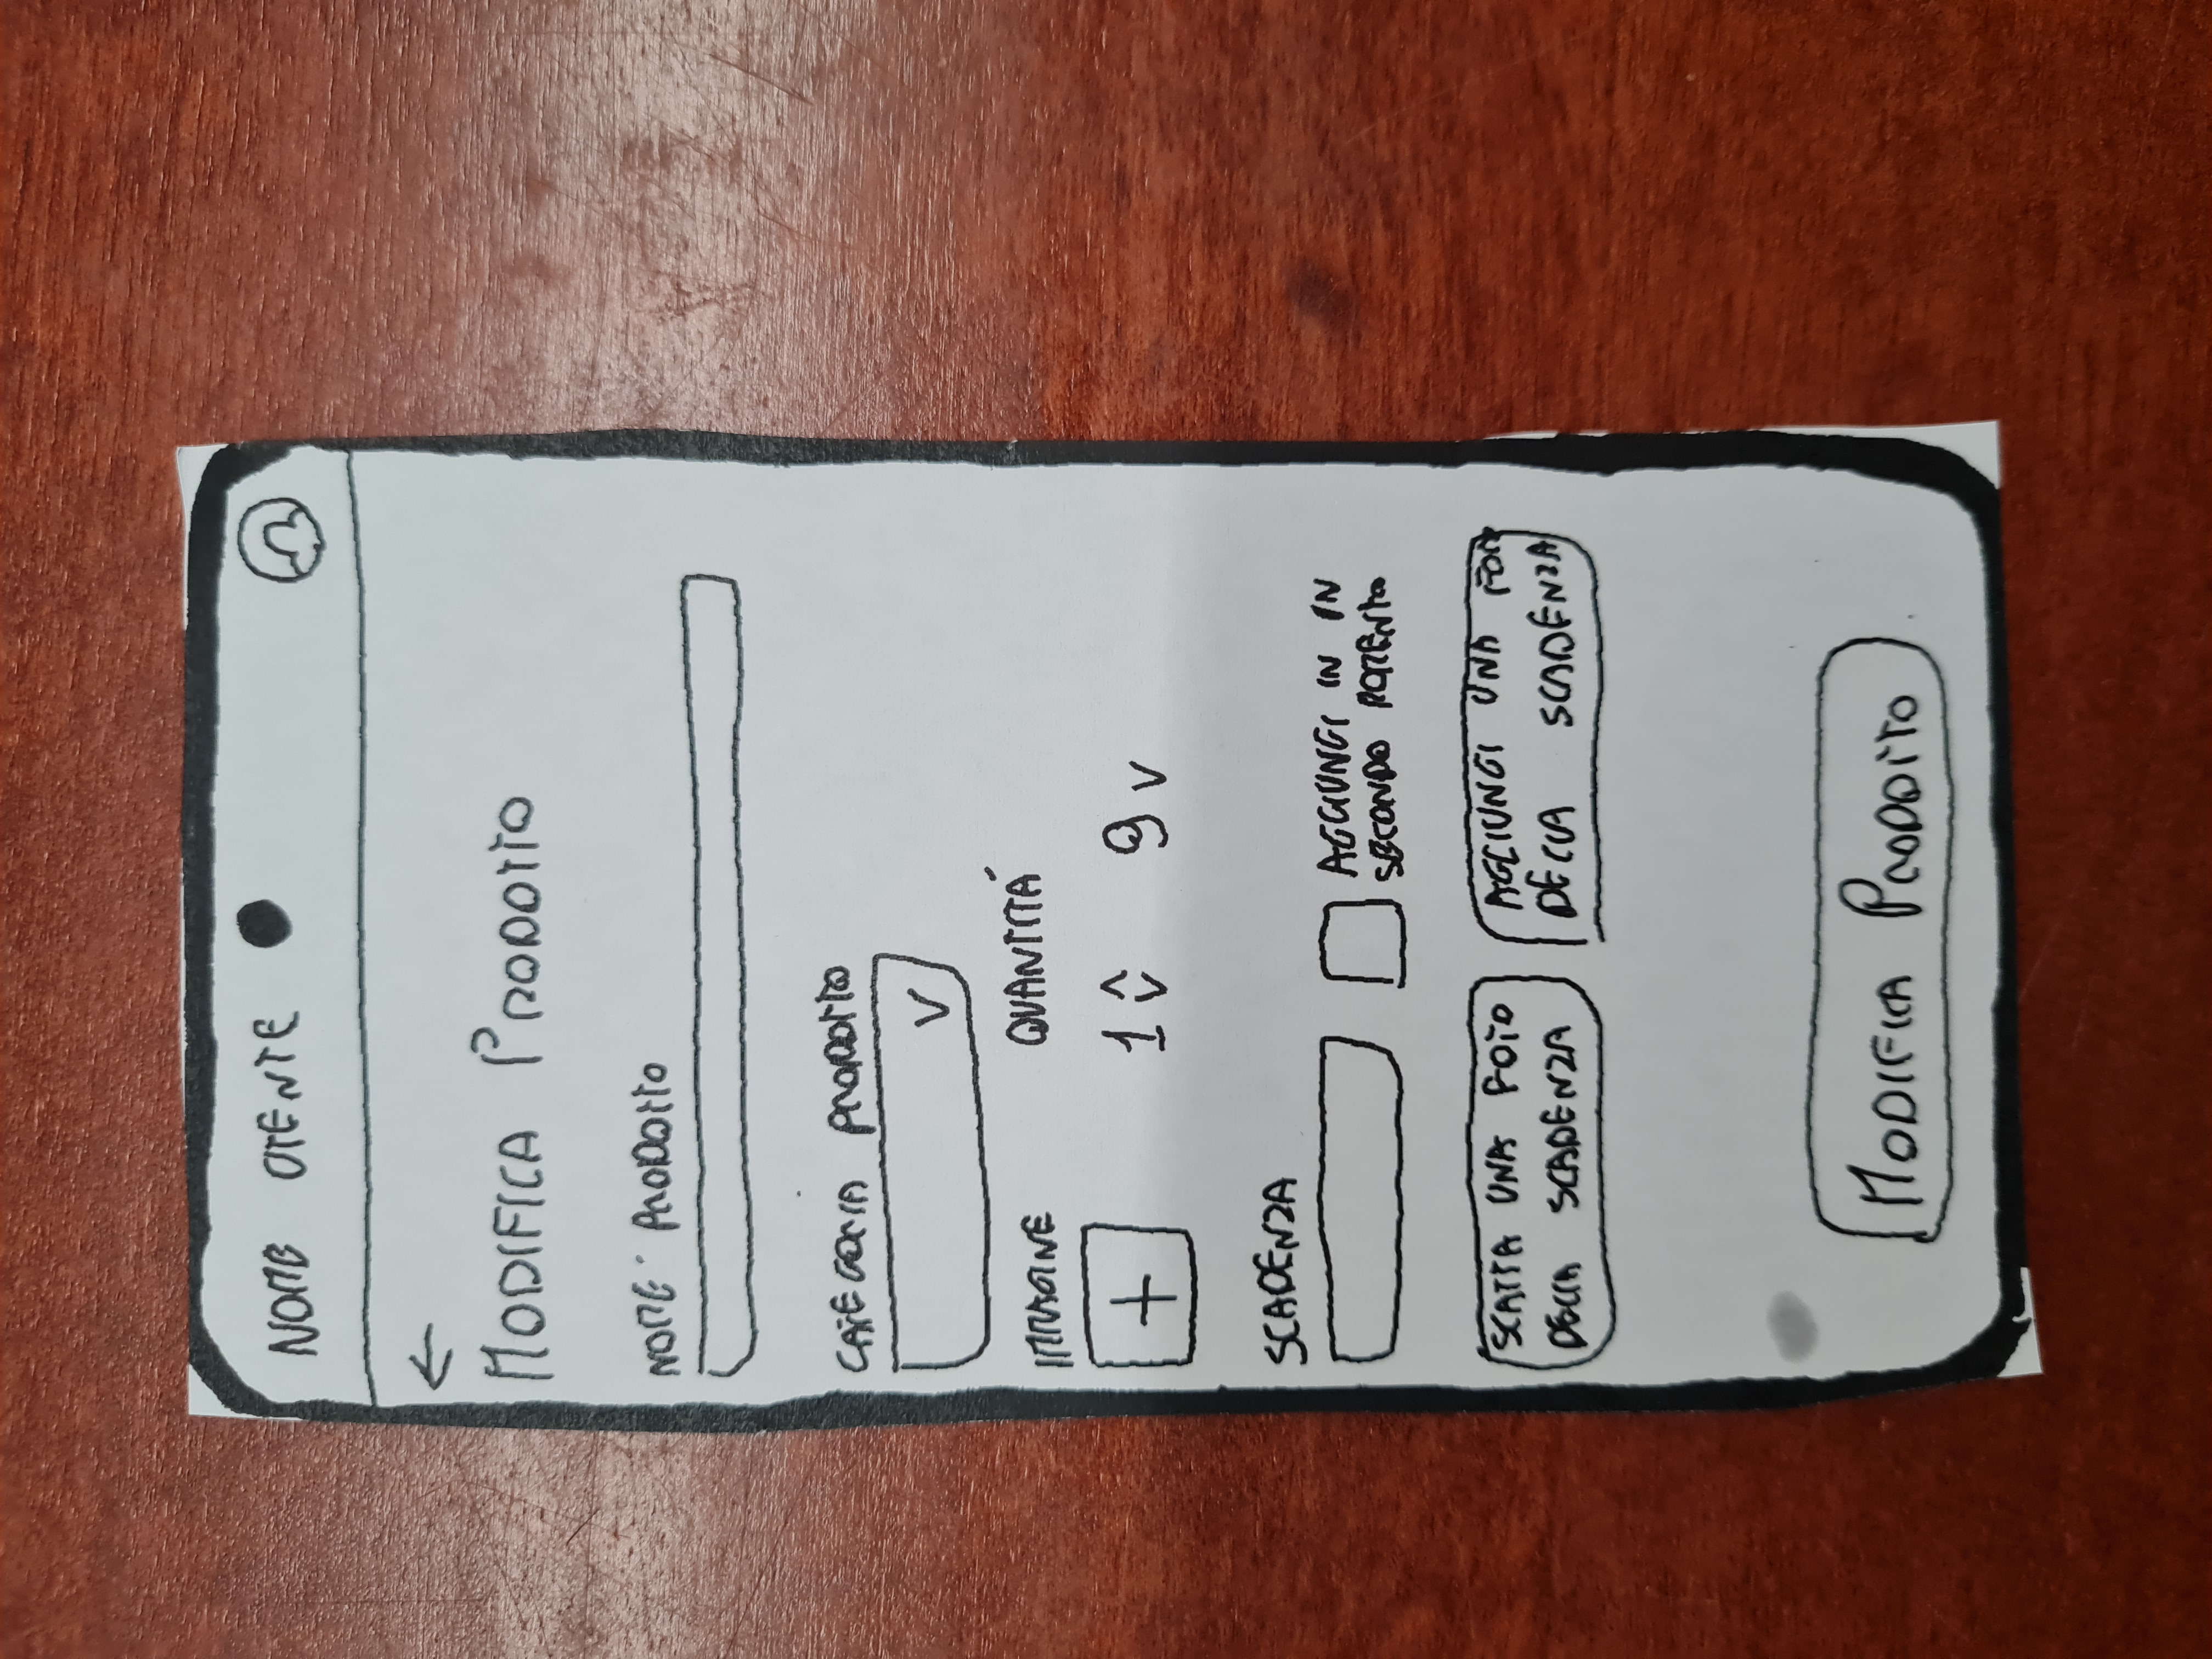 NOME UTENTE
←
MODIFICA PRODOTTO
NOME PRODOTTO
CATEGORIA PRODOTTO
V
IMMAGINE QUANTITÁ
+ 1 9 v
SCADENZA
AGGIUNGI IN IN
SECONDO MOMENTO
SCATTA UNA FOTO AGGIUNGI UNA FOTO
DELLA SCADENZA DELLA SCADENZA
MODIFICA PRODOTTO